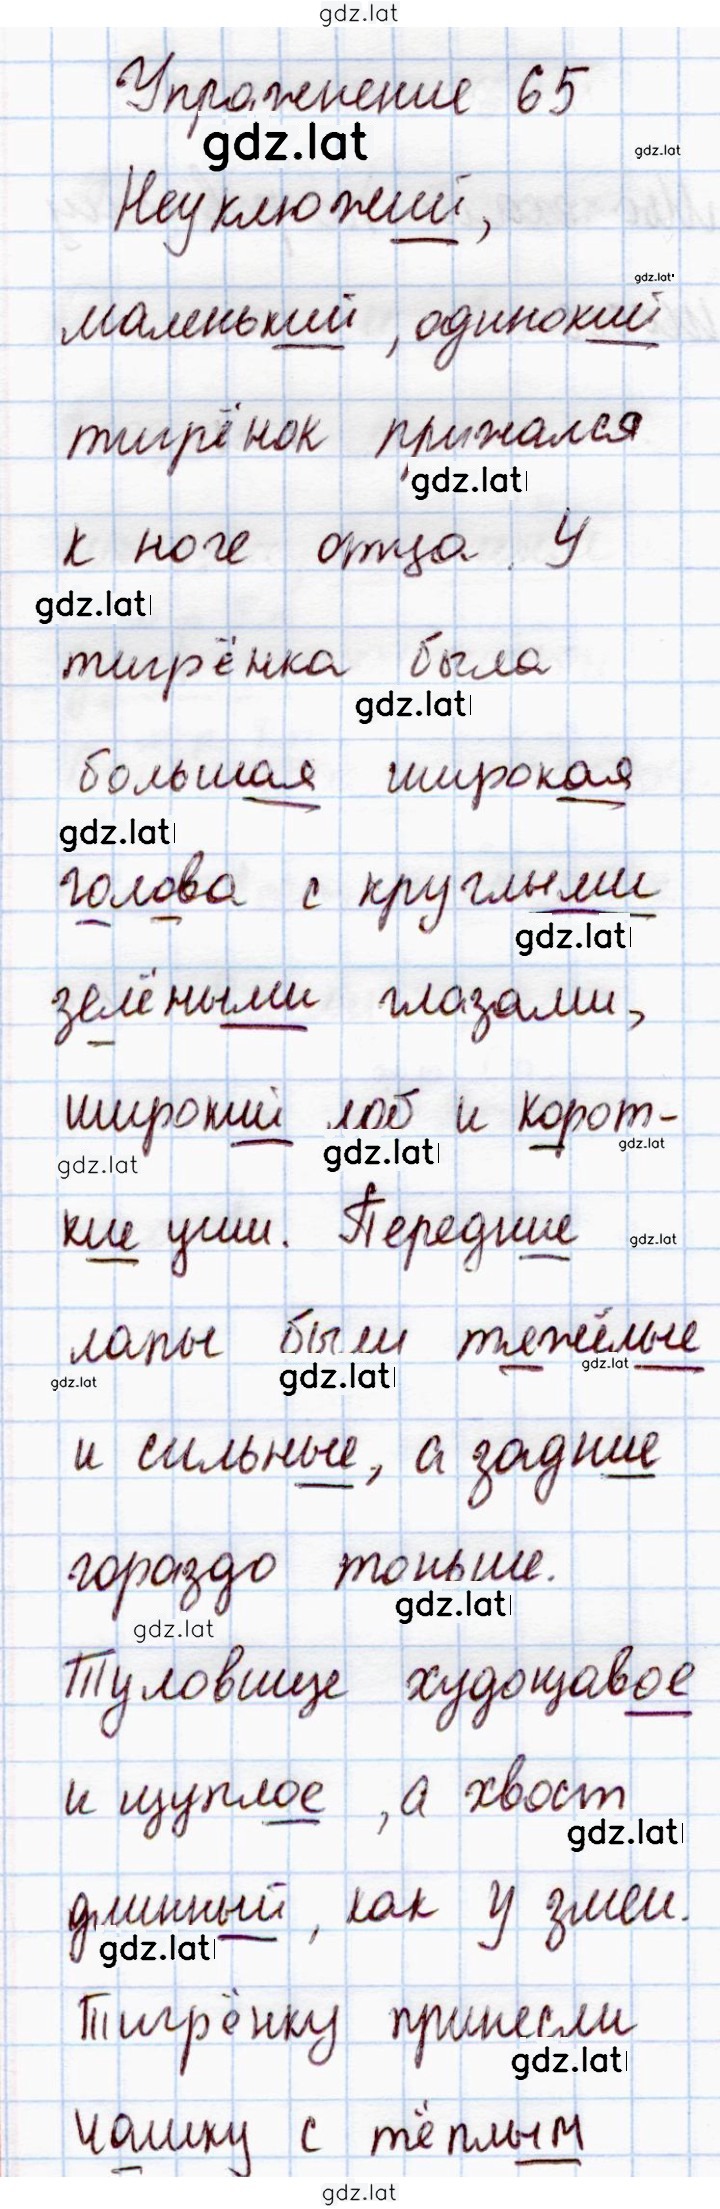 gdz.lat
Упражнение 65
gdz.lat
gdz.lat
Неуклюжий,
gdz.lat
маленький, одинокий
тигрёнок прижался
gdz.lat
к ноге отца. У
gdz.lat
тигрёнка была
gdz.lat
большая широкая
gdz.lat
голова с круглыми
gdz.lat
зелёными глазами,
широкий лоб и корот-
gdz.lat
gdz.lat
gdz.lat
кие уши. Передние
gdz.lat
лапы были тяжёлые
gdz.lat
gdz.lat
gdz.lat
и сильные, а задние
гораздо тоньше.
gdz.lat
gdz.lat
Туловище худощавое
и щуплое, а хвост
gdz.lat
длинный, как у змеи.
gdz.lat
Тигрёнку принесли
gdz.lat
чашку с тёплым
gdz.lat